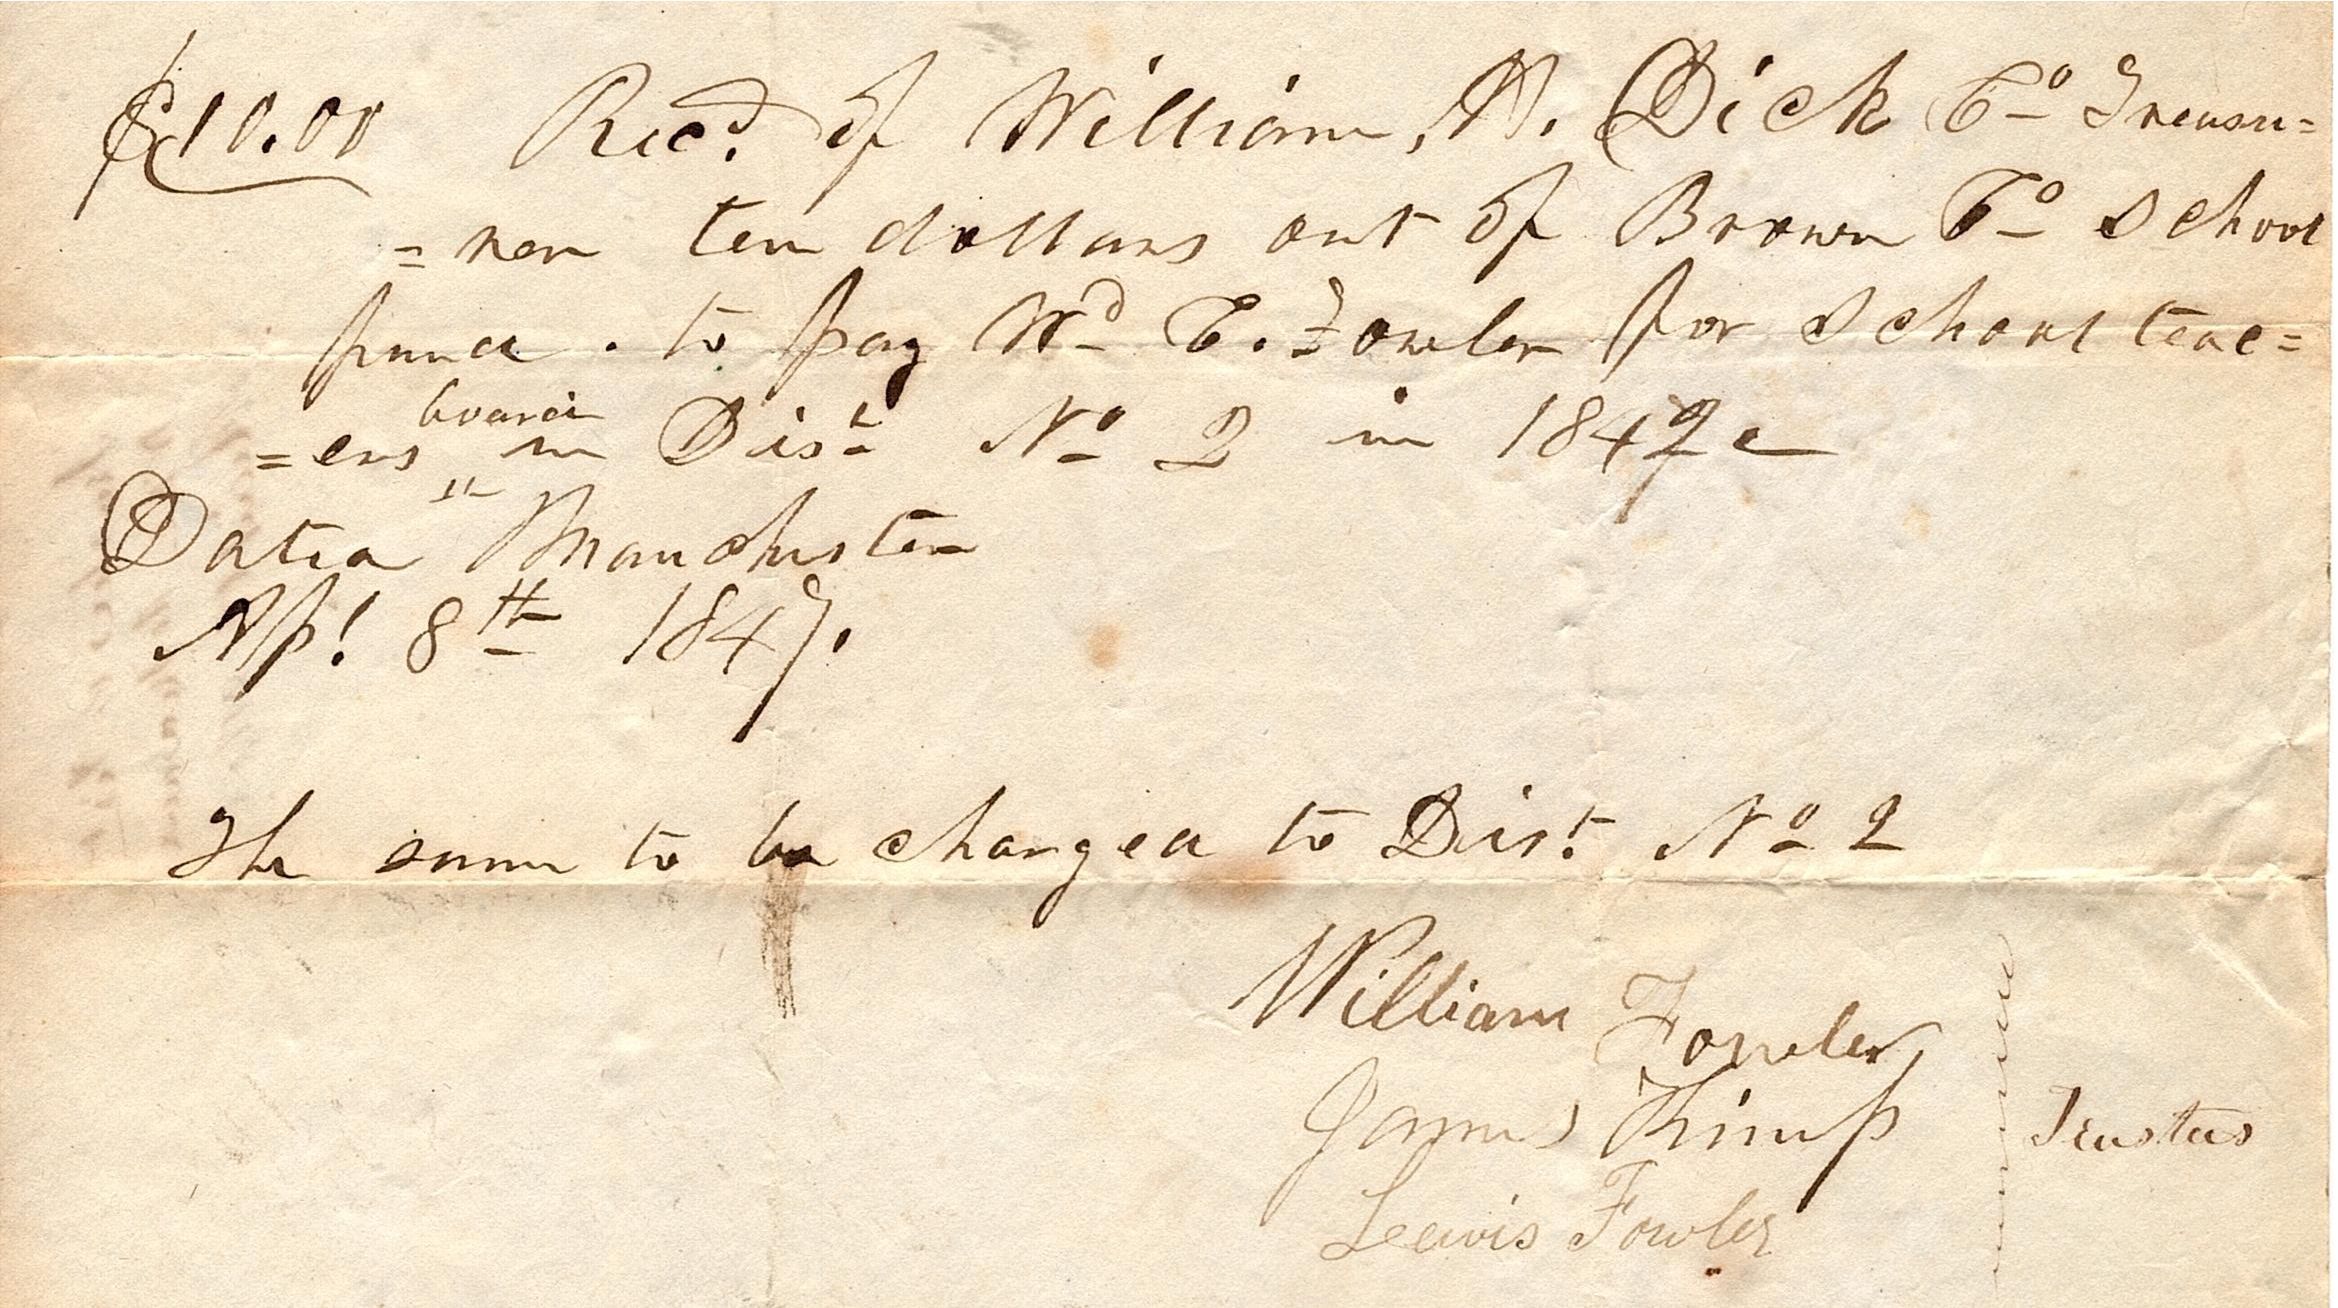 $10.00 Recd. of William, N. Dick Co Treasu=
=rer ten dollars out of Brown Co School
fund. to pay Wd C. Fowler for School teac=
board
=ers in Dist No 2 in 1847
Dated Manchester
Apl 8th 1847.
The same to be charged to Dist No 2
William Fowler
James Kimp
Trustees
Lewis Fowler